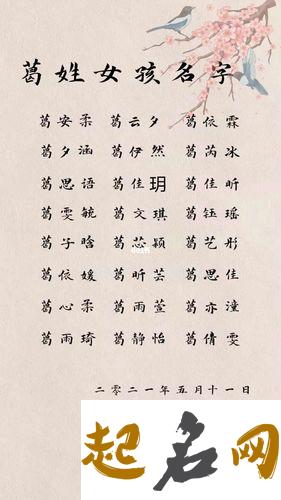 葛姓女孩名字
葛安柔 葛云夕 葛依霖
葛夕涵 葛伊然 葛芮冰
葛思语 葛佳玥 葛佳昕
葛雯毓 葛文琪 葛钰瑶
葛子晗 葛芯颖 葛艺彤
葛依媛 葛昕芸 葛思佳
葛心柔 葛雨萱 葛亦潼
葛雨琦 葛静怡 葛倩雯
二零二一年五月十一日
起名网